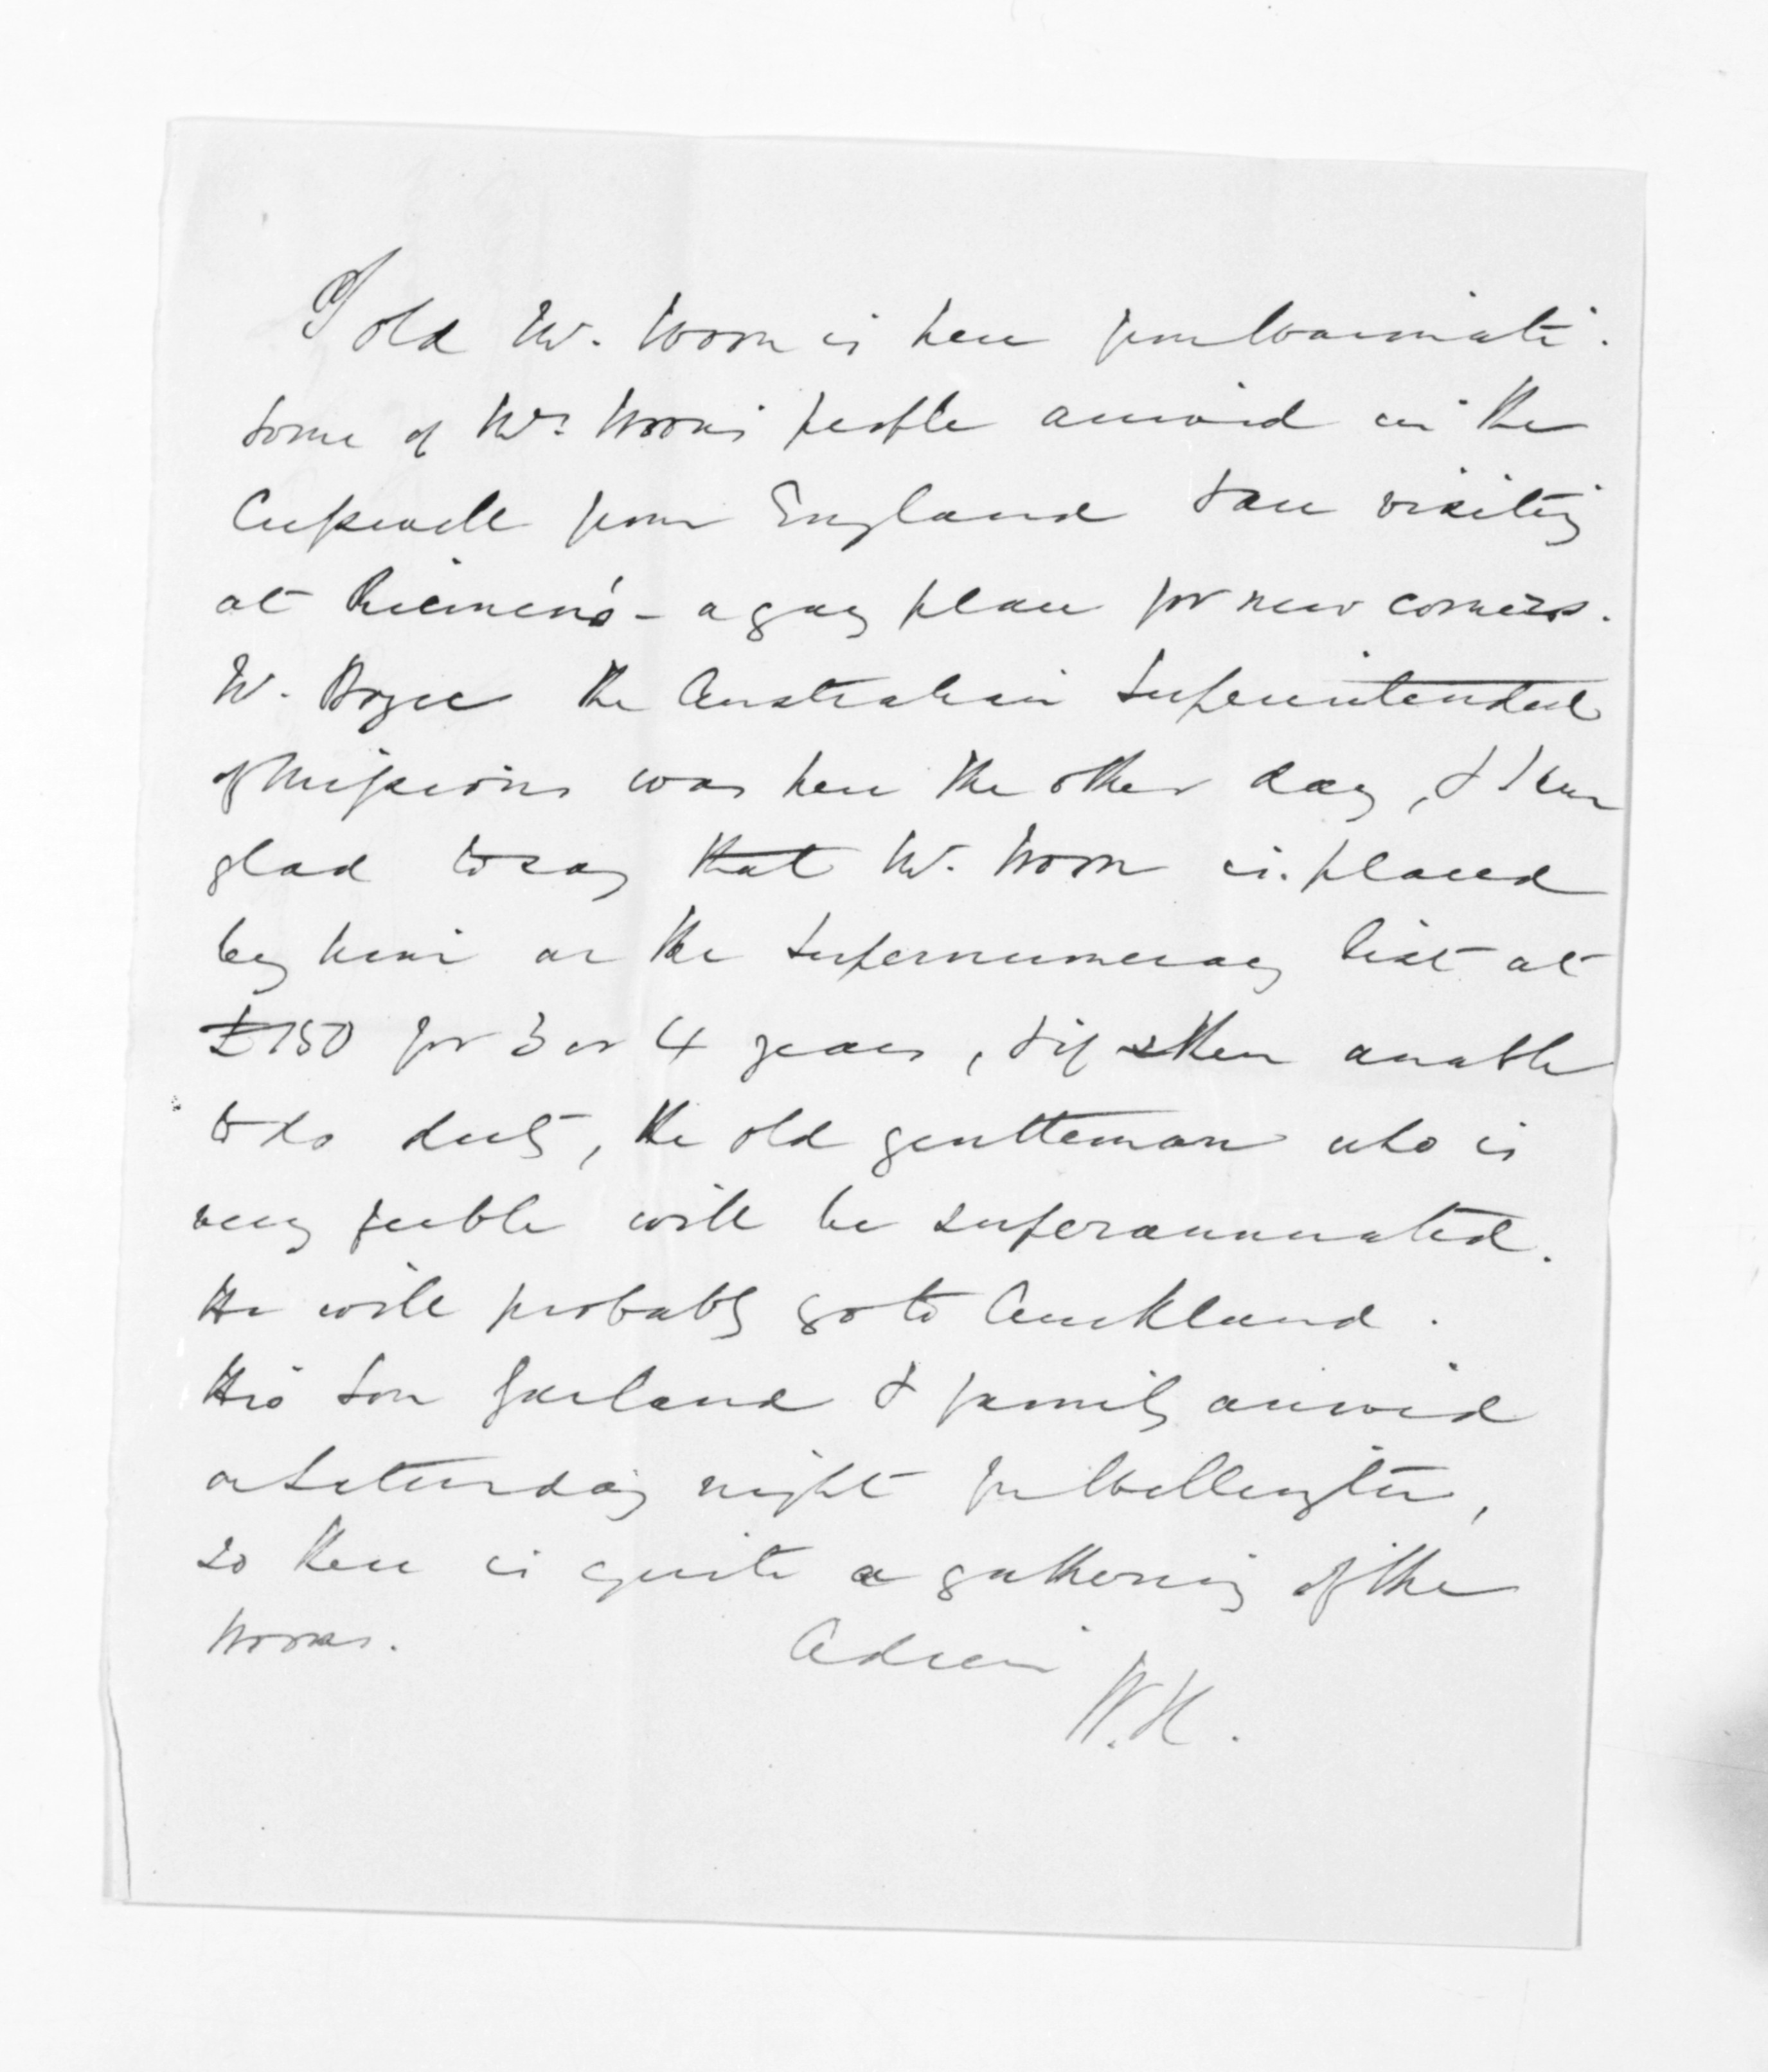 Old Mr. Woon is here from Waimate.
Some of Mrs Woon's people arrived in the
Cresswell from England & are visiting
at - a gay place for new comers.
Mr. Boyce the Australian Superintendent
of Missions was here the other day, & I am
glad to say that Mr. Woon is placed
by him on the Supernumerary list at
£150 for 3 or 4 years, & if then unable
to do duty, the old gentleman who is
very feeble will be superannuated.
He will probably go to Auckland.
His son Garland & family arrived
on Saturday night from Wellington,
so there is quite a gathering of the
Woons. Adieu
W.H.